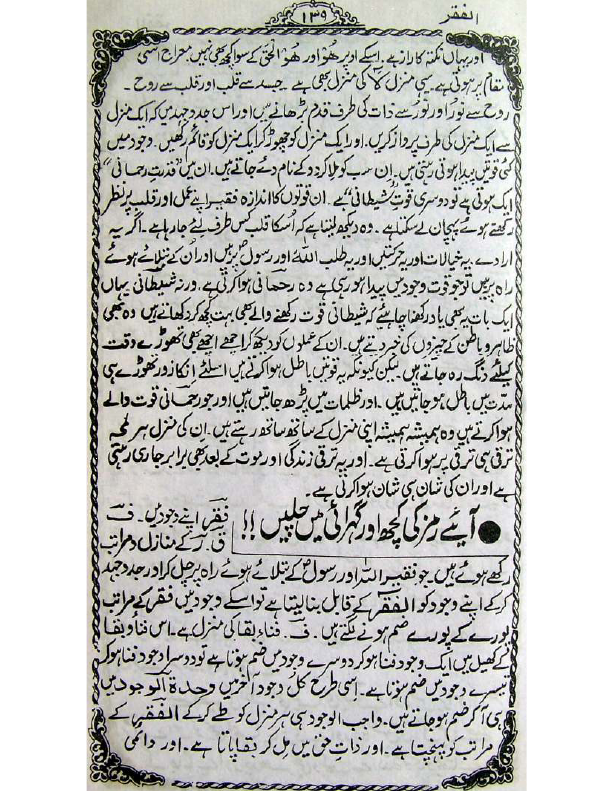 الفقر
۱۳۹
اور یہاں نکتہ کا راز ہے۔ اسکے اوپر ھُو اور ھُوَ الحق کے سوا کچھ بھی نہیں۔ معراج اسی
مقام پر ہوتی ہے۔ یہی منزل لا کی منزل بھی ہے۔ جسد سے قلب اور قلب سے روح۔
روح سے نُور اور نُور سے ذات کی طرف قدم بڑھاتے ہیں اور اس جدوجہد میں کہ ایک منزل
سے ایک منزل کی طرف پرواز کریں۔ اور ایک منزل کو چھوڑ کر ایک منزل کو قائم رکھیں۔ وجود میں
کئی قوتیں پیدا ہوتی رہتی ہیں۔ ان سب کو ملا کر دو کے نام دئے جاتے ہیں۔ ان میں "قدرت رحمانی"
ایک ہوتی ہے تو دوسری قوت "شیطانی" ہے۔ ان قوتوں کا اندازہ فقیر اپنے عمل اور قلب پر نظر
رکھتے ہوئے پہچان لے سکتا ہے۔ وہ دیکھ لیتا ہے کہ اُسکا قلب کس طرف لئے جا رہا ہے۔ اگر یہ
ارادے، یہ خیالات اور یہ حرکتیں اور یہ طلب اللہ اور رسولؐ پر ہیں اور اُن کے بتلائے ہوئے
راہ پر ہیں تو جو قوت وجود میں پیدا ہو رہی ہے وہ رحمانی ہوا کرتی ہے۔ ورنہ شیطانی یہاں
ایک بات یہ بھی یاد رکھنا چاہئے کہ شیطانی قوت رکھنے والے بھی بہت کچھ کر دکھاتے ہیں وہ بھی
ظاہر و باطن کے چیزوں کی خبر دیتے ہیں۔ ان کے عملوں کو دیکھ کر اچھے اچھے بھی تھوڑے وقت
کیلئے دنگ رہ جاتے ہیں۔ لیکن کیونکہ یہ قوتیں باطل ہوا کرتے ہیں اسلئے اِنکا زور تھوڑے ہی
مدت میں باطل ہو جاتے ہیں۔ اور ظلمات میں پڑھ جاتیں ہیں اور جو رحمانی قوت والے
ہوا کرتے ہیں وہ ہمیشہ ہمیشہ اپنی منزل کے ساتھ ساتھ رہتے ہیں۔ ان کی منزل ہر لمحہ
ترقی ہی ترقی پر ہوا کرتی ہے۔ اور یہ ترقی زندگی اور موت کے بعد بھی برابر جاری رہتی
ہے اور ان کی شان ہی شان ہوا کرتی ہے۔
● آیئے رمز کی کچھ اور گہرائی میں چلیں !!
فقر اپنے وجود میں۔ ف
ق۔ ر کے منازل و مراتب
رکھے ہوئے ہیں۔ جو فقیر اللہ اور رسولؐ کے بتلائے ہوئے راہ پر چل کر اور جدوجہد
کر کے اپنے وجود کو الفقر کے قابل بنا لیتا ہے تو اسکے وجود میں فقر کے مراتب
پورے کے پورے ضم ہونے لگتے ہیں۔ ف۔ فناء بقا کی منزل ہے۔ اس فنا و بقا
کے کھیل میں ایک وجود فنا ہو کر دوسرے وجود میں ضم ہوتا ہے تو دوسرا وجود فنا ہو کر
تیسرے وجود میں ضم ہوتا ہے۔ اسی طرح کل وجود آخر میں وحدۃ الوجود میں
ہی آ کر ضم ہو جاتے ہیں۔ واجب الوجود ہی ہر منزل کو طے کر کے الفقر کے
مراتب کو پہنچتا ہے۔ اور ذاتِ حق میں مِل کر بقا پاتا ہے۔ اور دائمی